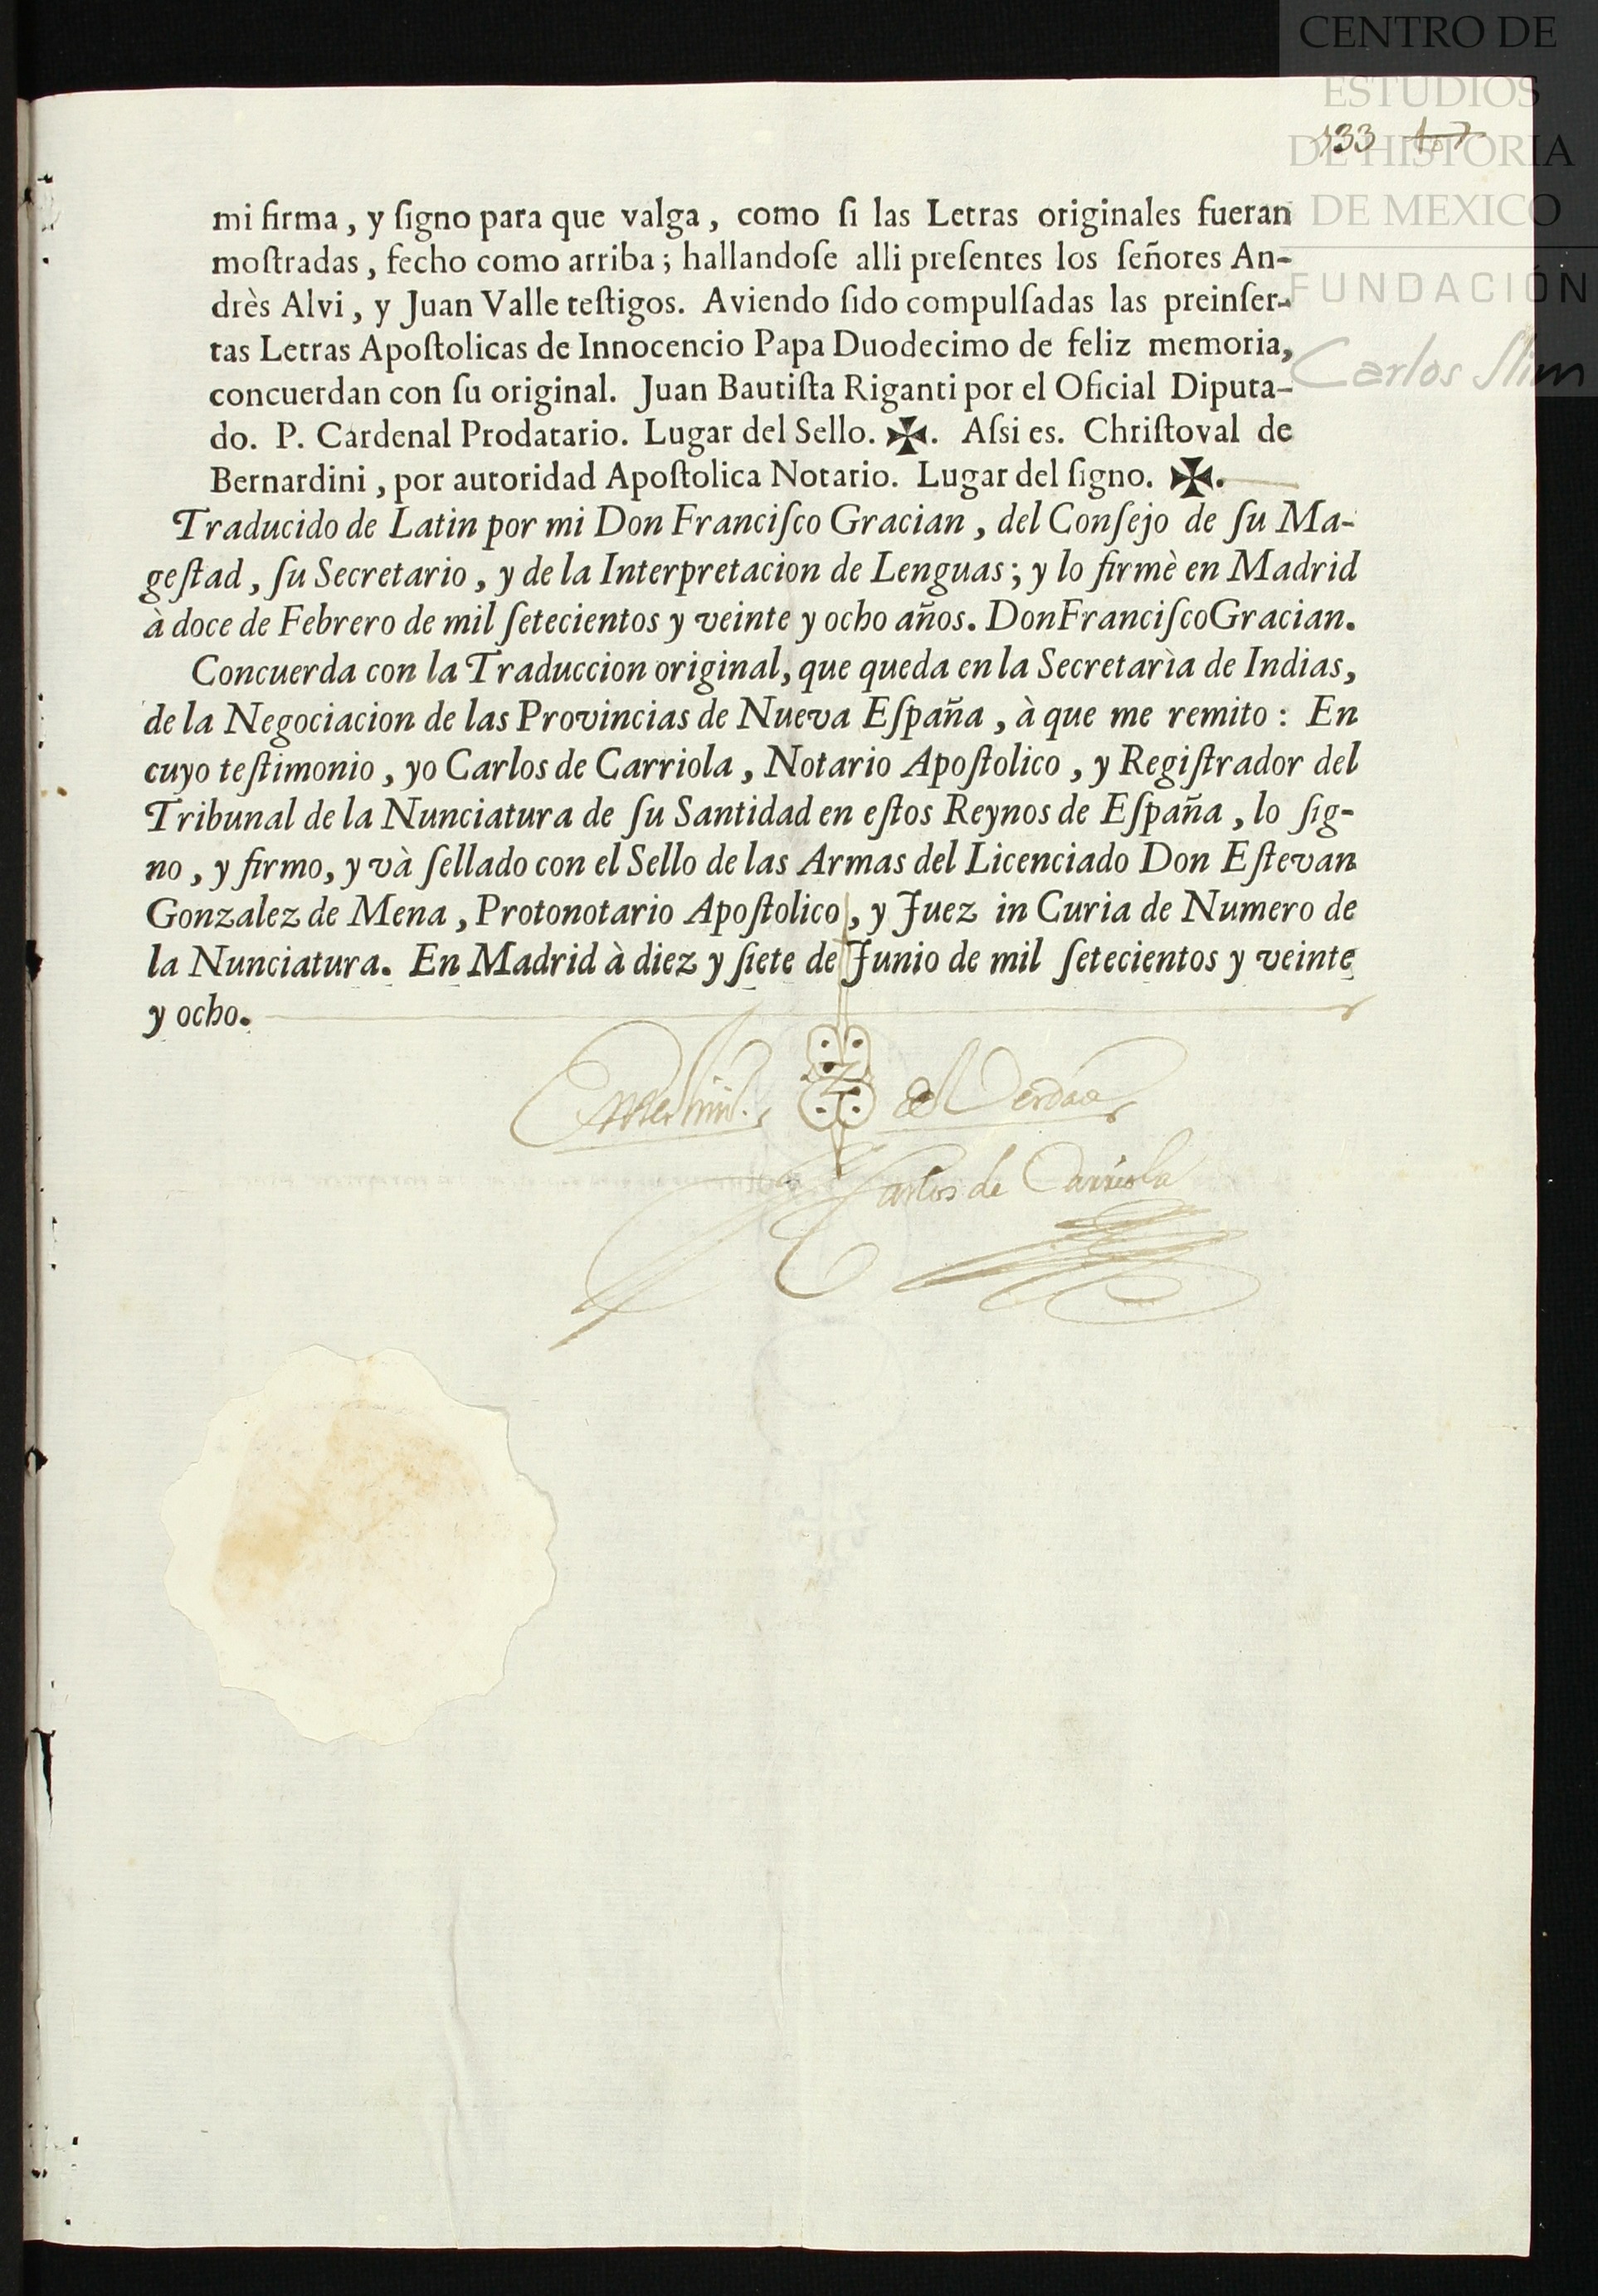 CENTRO DE
ESTUDIOS
DE HISTORIA
DE MEXICO
FUNDACIÓN
Carlos Slim
133
mi firma, y ſigno para que valga, como ſi las Letras originales fueran
moſtradas, fecho como arriba; hallandoſe alli preſentes los ſeñores An-
drès Alvi, y Juan Valle teſtigos. Aviendo ſido compulſadas las preinſer-
tas Letras Apoſtolicas de Innocencio Papa Duodecimo de feliz memoria,
concuerdan con ſu original. Juan Bautiſta Riganti por el Oficial Diputa-
do. P. Cardenal Prodatario. Lugar del Sello. ✠. Aſsi es. Chriſtoval de
Bernardini, por autoridad Apoſtolica Notario. Lugar del ſigno. ✠.
Traducido de Latin por mi Don Franciſco Gracian, del Conſejo de ſu Ma-
geſtad, ſu Secretario, y de la Interpretacion de Lenguas; y lo firmè en Madrid
à doce de Febrero de mil ſetecientos y veinte y ocho años. Don Franciſco Gracian.
Concuerda con la Traduccion original, que queda en la Secretarìa de Indias,
de la Negociacion de las Provincias de Nueva Eſpaña, à que me remito: En
cuyo teſtimonio, yo Carlos de Carriola, Notario Apoſtolico, y Regiſtrador del
Tribunal de la Nunciatura de ſu Santidad en eſtos Reynos de Eſpaña, lo ſig-
no, y firmo, y và ſellado con el Sello de las Armas del Licenciado Don Eſtevan
Gonzalez de Mena, Protonotario Apoſtolico, y Juez in Curia de Numero de
la Nunciatura. En Madrid à diez y ſiete de Junio de mil ſetecientos y veinte
y ocho.
de Verdad
Carlos de Carriola